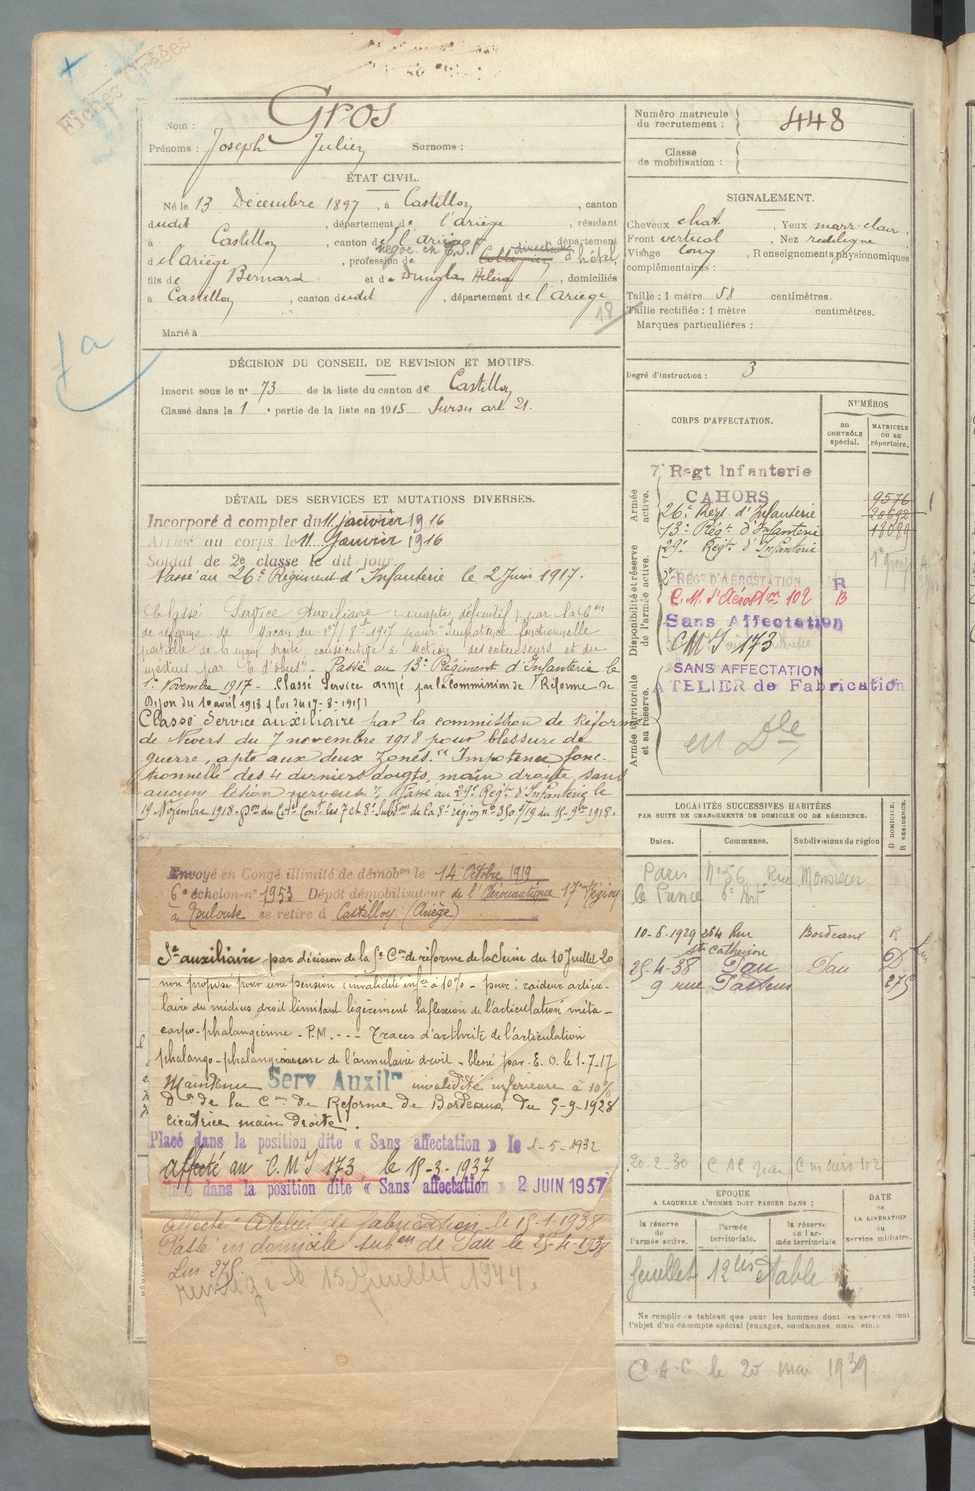 Fiches
Gros
Nom :
Prénoms : Joseph Julien Surnoms :
ÉTAT CIVIL.
Né le 13 Décembre 1897, à Castillon, canton
dudit, département de l'ariège, résidant
à Castillon, canton de l'ariège, département
negoc. en directeur
d el'Ariège, profession de d'hôtel
fils de Bernard et de Dunglas Hélène, domiciliés
à Castillon, canton dudit, département de l'ariège
18
Marié à
1a
DÉCISION DU CONSEIL DE REVISION ET MOTIFS.
Inscrit sous le n° 73 de la liste du canton de Castillon
Classé dans la 1e partie de la liste en 1915 Sursis art. 21.
DÉTAIL DES SERVICES ET MUTATIONS DIVERSES.
Incorporé à compter du 11 janvier 1916
Arrivé au corps le 11 Janvier 1916
Soldat de 2e classe le dit jour.
Passé au 26e Régiment d'Infanterie le 2 Juin 1917.
Classé Service Auxiliaire inapte définitif, par la Con
de réforme de Macon du 1er/8bre 1917 pour "Impotence fonctionnelle
partielle de la main droite consécutive à section des extenseurs et du
médius par E. d'obus". Passé au 13e Régiment d'Infanterie le
1er Novembre 1917. Classé Service armé par la commission de Réforme de
Dijon du 10 avril 1918 (loi du 17-8-1915)
Classé Service auxiliaire par la commission de Réforme
de Nevers du 7 novembre 1918 pour blessure de
guerre, apte aux deux zones. "Impotence fonc-
tionnelle des 4 derniers doigts, main droite sans
aucune lésion nerveuse". Passé au 29e Régt d'Infanterie le
19 Novembre 1918.
Envoyé en Congé illimité de démobon le 14 Octobre 1919
6e échelon-n° 1953 Dépôt démobilisateur de l'Aéronautique 17e Région
à Toulouse se retire à Castillon (Ariège)
Sce auxiliaire par décision de la Con de réforme de la Seine du 10 Juillet 20
non proposé pour une pension invalidité infre à 10% - pour : raideur articu-
laire du médius droit limitant légèrement la flexion de l'articulation méta-
carpo-phalangienne. P.M. --- Traces d'arthrite de l'articulation
phalango-phalanginienne de l'annulaire droit. blessé par E.O. le 1-7-17
Maintenu Serv. Auxilre invalidité inférieure à 10%
Don de la Con de Réforme de Bordeaux, du 5-9-1928
cicatrice main droite.
Placé dans la position dite « Sans affectation » le 1-5-1932
affecté au C.M.I 173 le 15-3-1937
Placé dans la position dite « Sans affectation » 2 JUIN 1937
affecté Atelier de fabrication le 15-1-1938
Passé en domicile subon de Pau le 25-4-1938
le 15 Juillet 1944.
Numéro matricule du recrutement : 448
Classe de mobilisation :
SIGNALEMENT.
Cheveux chat. Yeux marr-clairs
Front vertical, Nez rectiligne
Visage long, Renseignements physionomiques
complémentaires :
Taille : 1 mètre 58 centimètres.
Taille rectifiée : 1 mètre centimètres.
Marques particulières :
Degré d'instruction : 3
CORPS D'AFFECTATION.
NUMÉROS
au contrôle spécial.
MATRICULE ou au répertoire.
Armée active.
7e Regt Infanterie
CAHORS 9576
26e Régt d'Infanterie 20692
13e Régt d'Infanterie 18089
29e Régt d'Infanterie
Disponibilité et réserve de l'armée active.
2e RÉGT D'AÉROSTATION R
C.M. d'Aérostion 102 B
Sans Affectation
CMI 173
SANS AFFECTATION
ATELIER de Fabrication
Armée territoriale et sa réserve.
en Dle
LOCALITÉS SUCCESSIVES HABITÉES
PAR SUITE DE CHANGEMENTS DE DOMICILE OU DE RÉSIDENCE.
Dates. Communes. Subdivisions de région D DOMICILE. R RÉSIDENCE.
Paris N° 56 Rue Monsieur
le Prince 6e Art
10-6-1929 264 Rue Bordeaux R
Ste Catherine
25-4-38 Pau Pau D
9 rue Pasteur 275
20-2-30 102
EPOQUE
A LAQUELLE L'HOMME DOIT PASSER DANS :
la réserve de l'armée active.
l'armée territoriale.
la réserve de l'armée territoriale
DATE de LA LIBÉRATION du service militaire.
feuillet 12 bis établi
Ne remplir ce tableau que pour les hommes dont les services font
l'objet d'un décompte spécial (engagés, condamnés, omis, etc...
C.A.C le 20 mai 1939